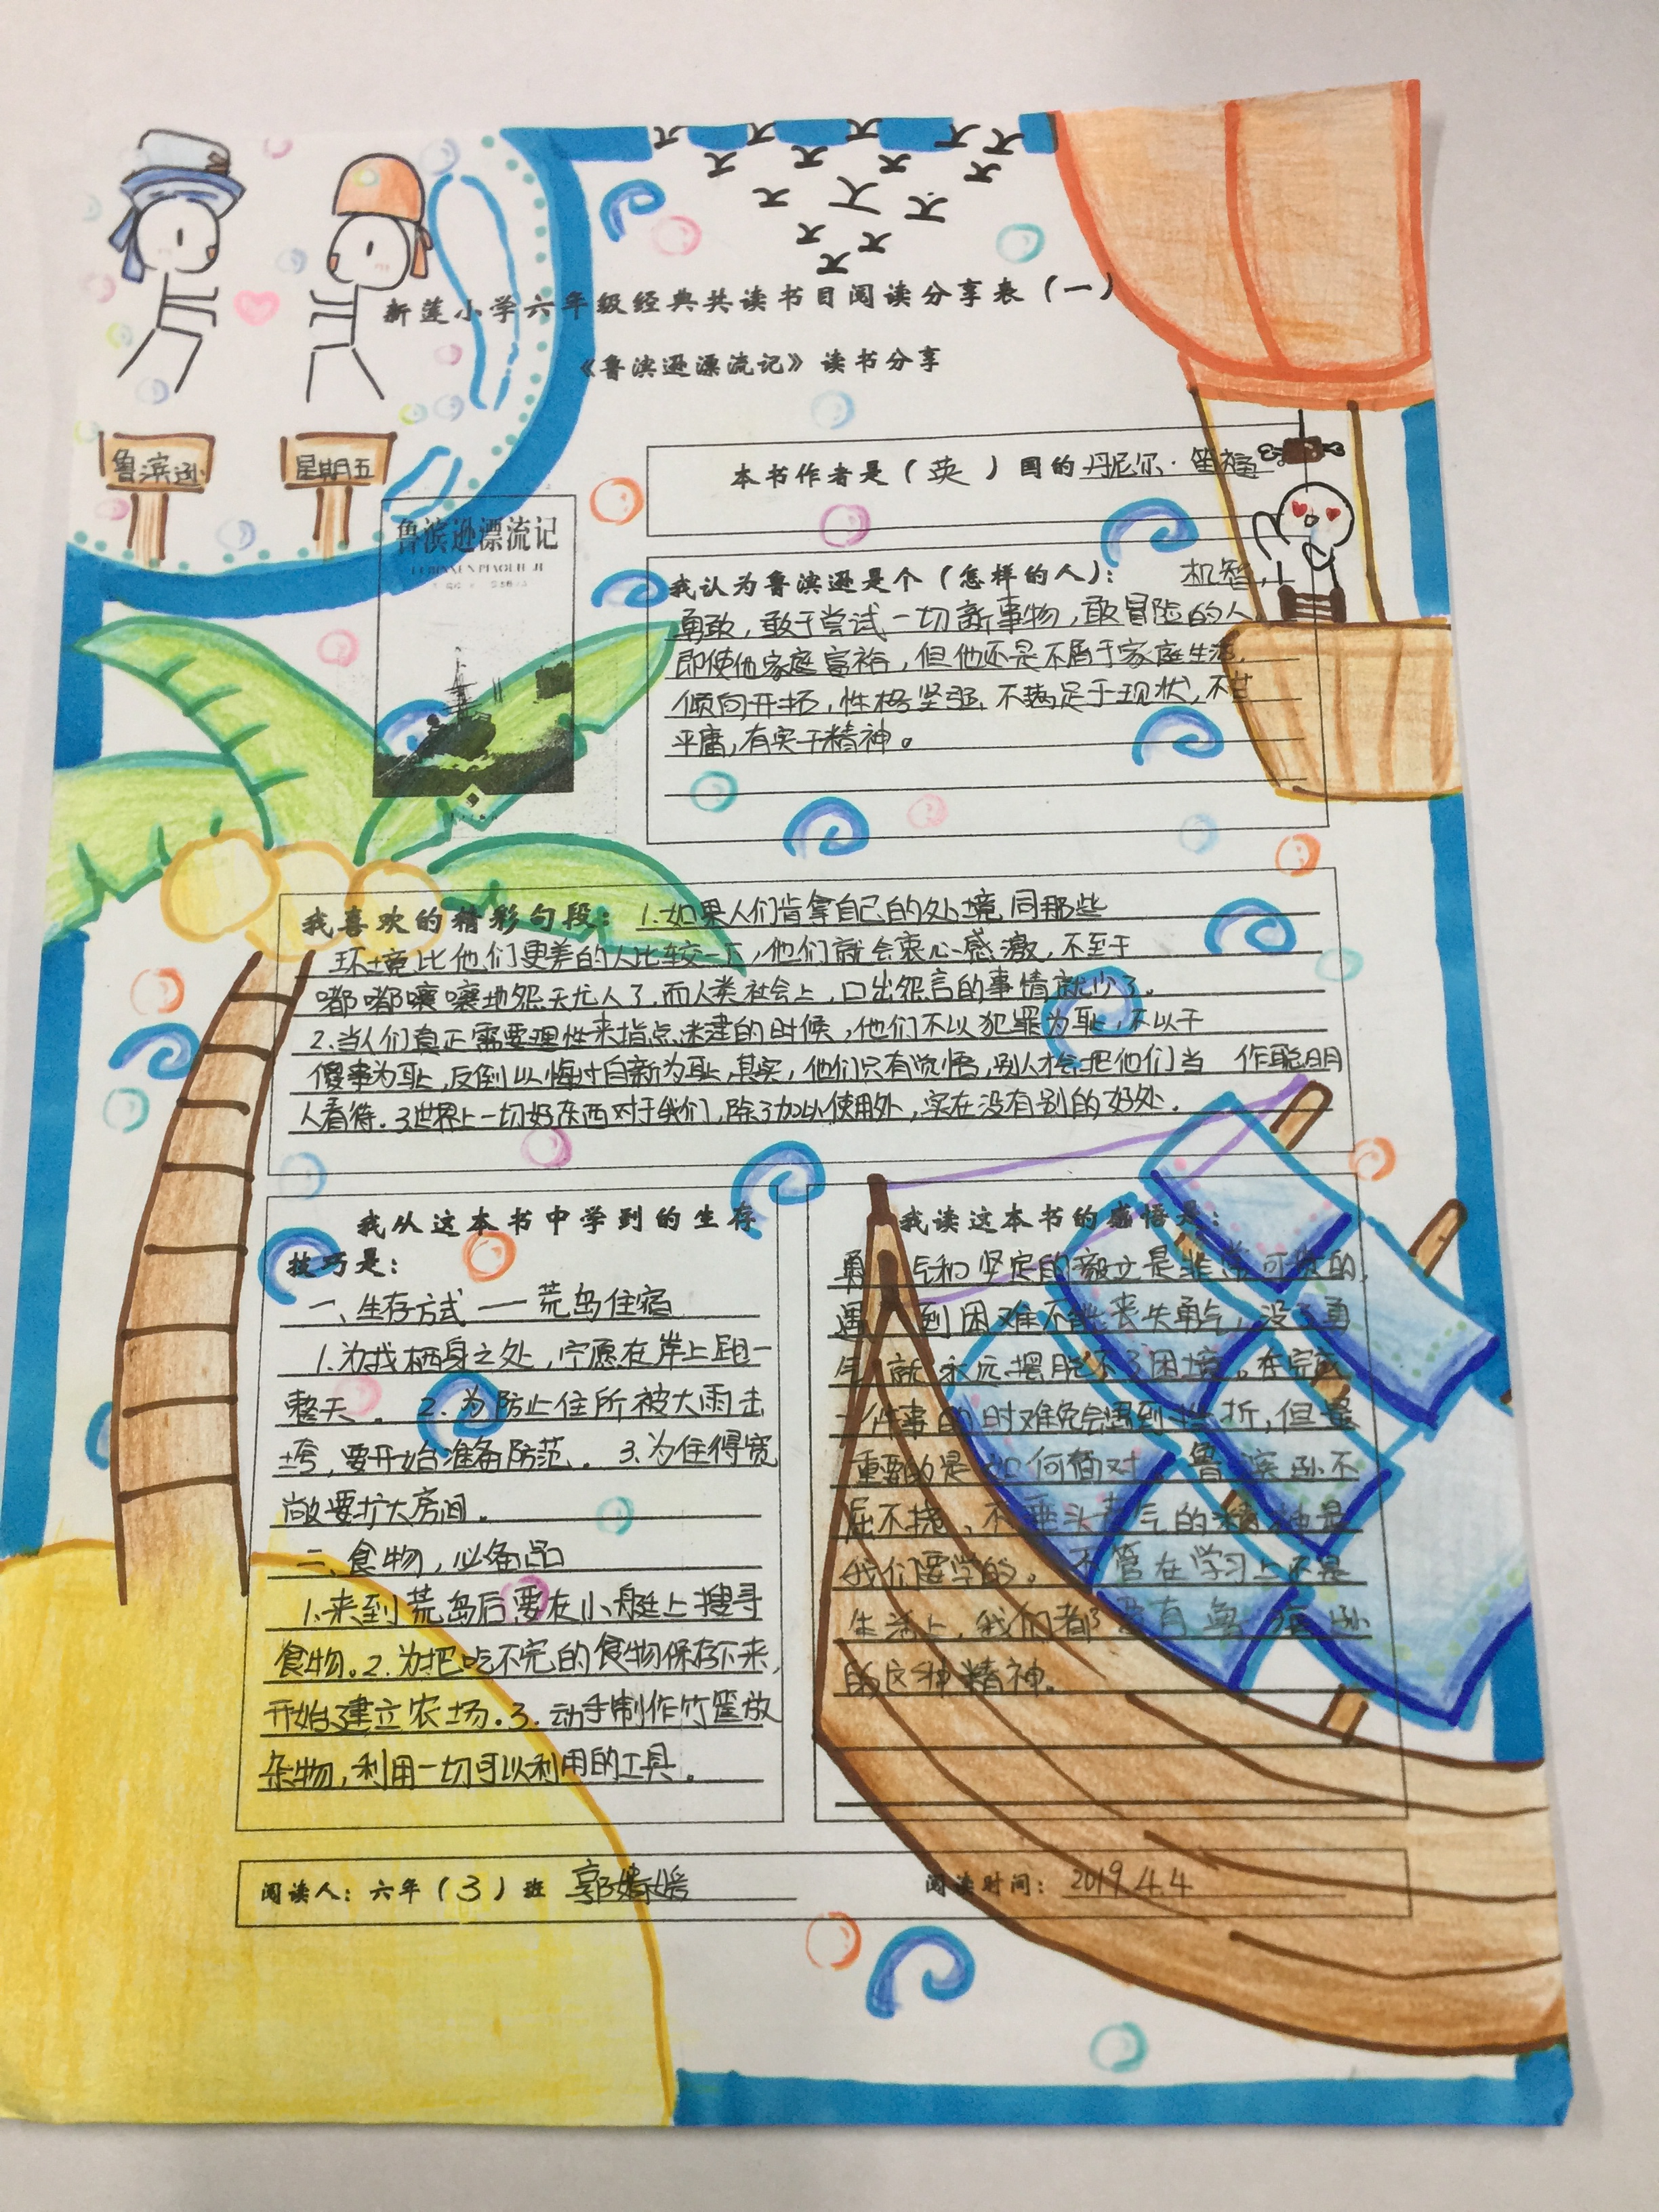 新莲小学六年级经典共读书目阅读分享表（一）
《鲁滨逊漂流记》读书分享
鲁滨逊
星期五
鲁滨逊漂流记
本书作者是（英）国的丹尼尔·笛福
我认为鲁滨逊是个（怎样的人）：机智，
勇敢，敢于尝试一切新事物，敢冒险的人
即使他家庭富裕，但他还是不屑于家庭生活，
倾向开拓，性格坚强，不满足于现状，不甘
平庸，有实干精神。
我喜欢的精彩句段：1.如果人们肯拿自己的处境同那些
环境比他们更差的人比较一下，他们就会衷心感激，不至于
嘟嘟嚷嚷地怨天尤人了，而人类社会上，口出怨言的事情就少了。
2.当人们真正需要理性来指点迷津的时候，他们不以犯罪为耻，不以干
傻事为耻，反倒以悔过自新为耻，其实，他们只有觉悟，别人才会把他们当 作聪明
人看待。3世界上一切好东西对于我们，除了加以使用处，实在没有别的好处。
我从这本书中学到的生存
技巧是：
一、生存方式——荒岛住宿
1.为找栖身之处，宁愿在岸上跑一
整天。2.为防止住所被大雨击
垮，要开始准备防范。3.为住得宽
敞要扩大房间。
二、食物，必备品
1.来到荒岛后要在小艇上搜寻
食物。2.为把吃不完的食物保存下来，
开始建立农场。3.动手制作竹筐放
杂物，利用一切可以利用的工具。
我读这本书的感悟是：
勇气和坚定的毅立是非常可贵的，
遇到困难不能丧失勇气，没了勇
气，就永远摆脱不了困境。在完成
一件事的时难免会遇到挫折，但最
重要的是如何面对。鲁滨逊不
屈不挠、不垂头丧气的精神是
我们要学的。不管在学习上还是
生活上，我们都要有鲁滨逊
的这种精神。
阅读人：六年（3）班 郭婧媛
阅读时间：2019.4.4